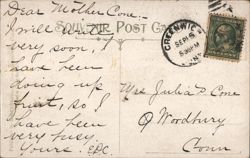 Dear Mother Cone:-
SOUVENIR POST CARD
I will
very soon, I
have been
doing up
fruit, so I
have been
very busy.
Yours.
GREENWICH
SEP
Mrs Julia D. Cone
Woodbury
Conn